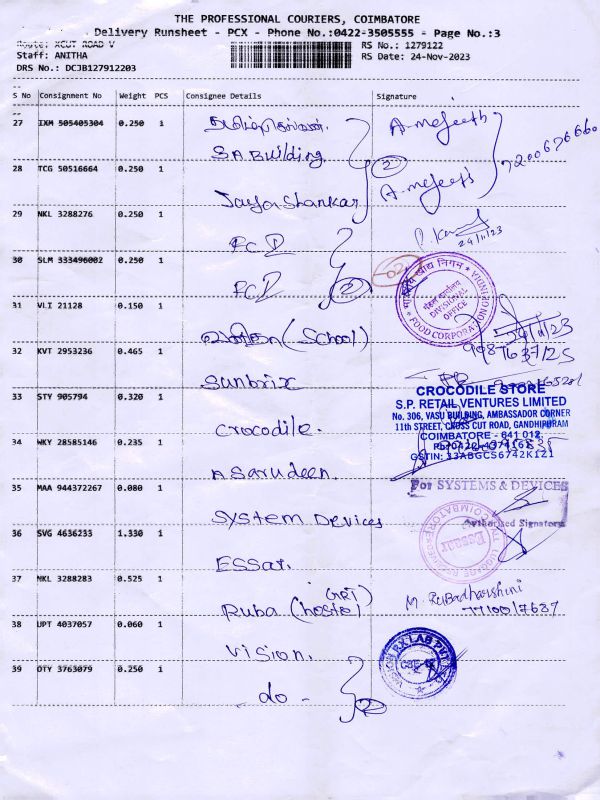 THE PROFESSIONAL COURIERS, COIMBATORE
Delivery Runsheet - PCX - Phone No.:0422-3505555 - Page No.:3
Route: XCUT ROAD V
RS No.: 1279122
Staff: ANITHA
RS Date: 24-Nov-2023
DRS No.: DCJB127912203
S No Consignment No Weight PCS Consignee Details Signature
27 IXM 505405304 0.250 1
S.A. Building A-mejeeth
28 TCG 50516664 0.250 1 2
Jayashankar A-mejeeth
29 NKL 3288276 0.250 1
FCI 24/11/23
30 SLM 333496002 0.250 1
FCI 2
DIVISIONAL OFFICE
FOOD CORPORATION OF INDIA
31 VLI 21128 0.150 1
(School)
32 KVT 2953236 0.465 1
Sunbrix
33 STY 905794 0.320 1
CROCODILE STORE
S.P. RETAIL VENTURES LIMITED
No. 306, VASU BUILDING, AMBASSADOR CORNER
11th STREET, CROSS CUT ROAD, GANDHIPURAM
COIMBATORE - 641 012.
Crocodile.
GSTIN: 33ABGCS6742K1Z1
34 WKY 28585146 0.235 1
Asarudeen.
35 MAA 944372267 0.080 1
For SYSTEMS & DEVICES
System Devices
Authorised Signatory
36 SVG 4636233 1.330 1
ESSar.
37 NKL 3288283 0.525 1
Ruba (hostel
38 UPT 4037057 0.060 1
Vision.
39 OTY 3763079 0.250 1
- do - 2